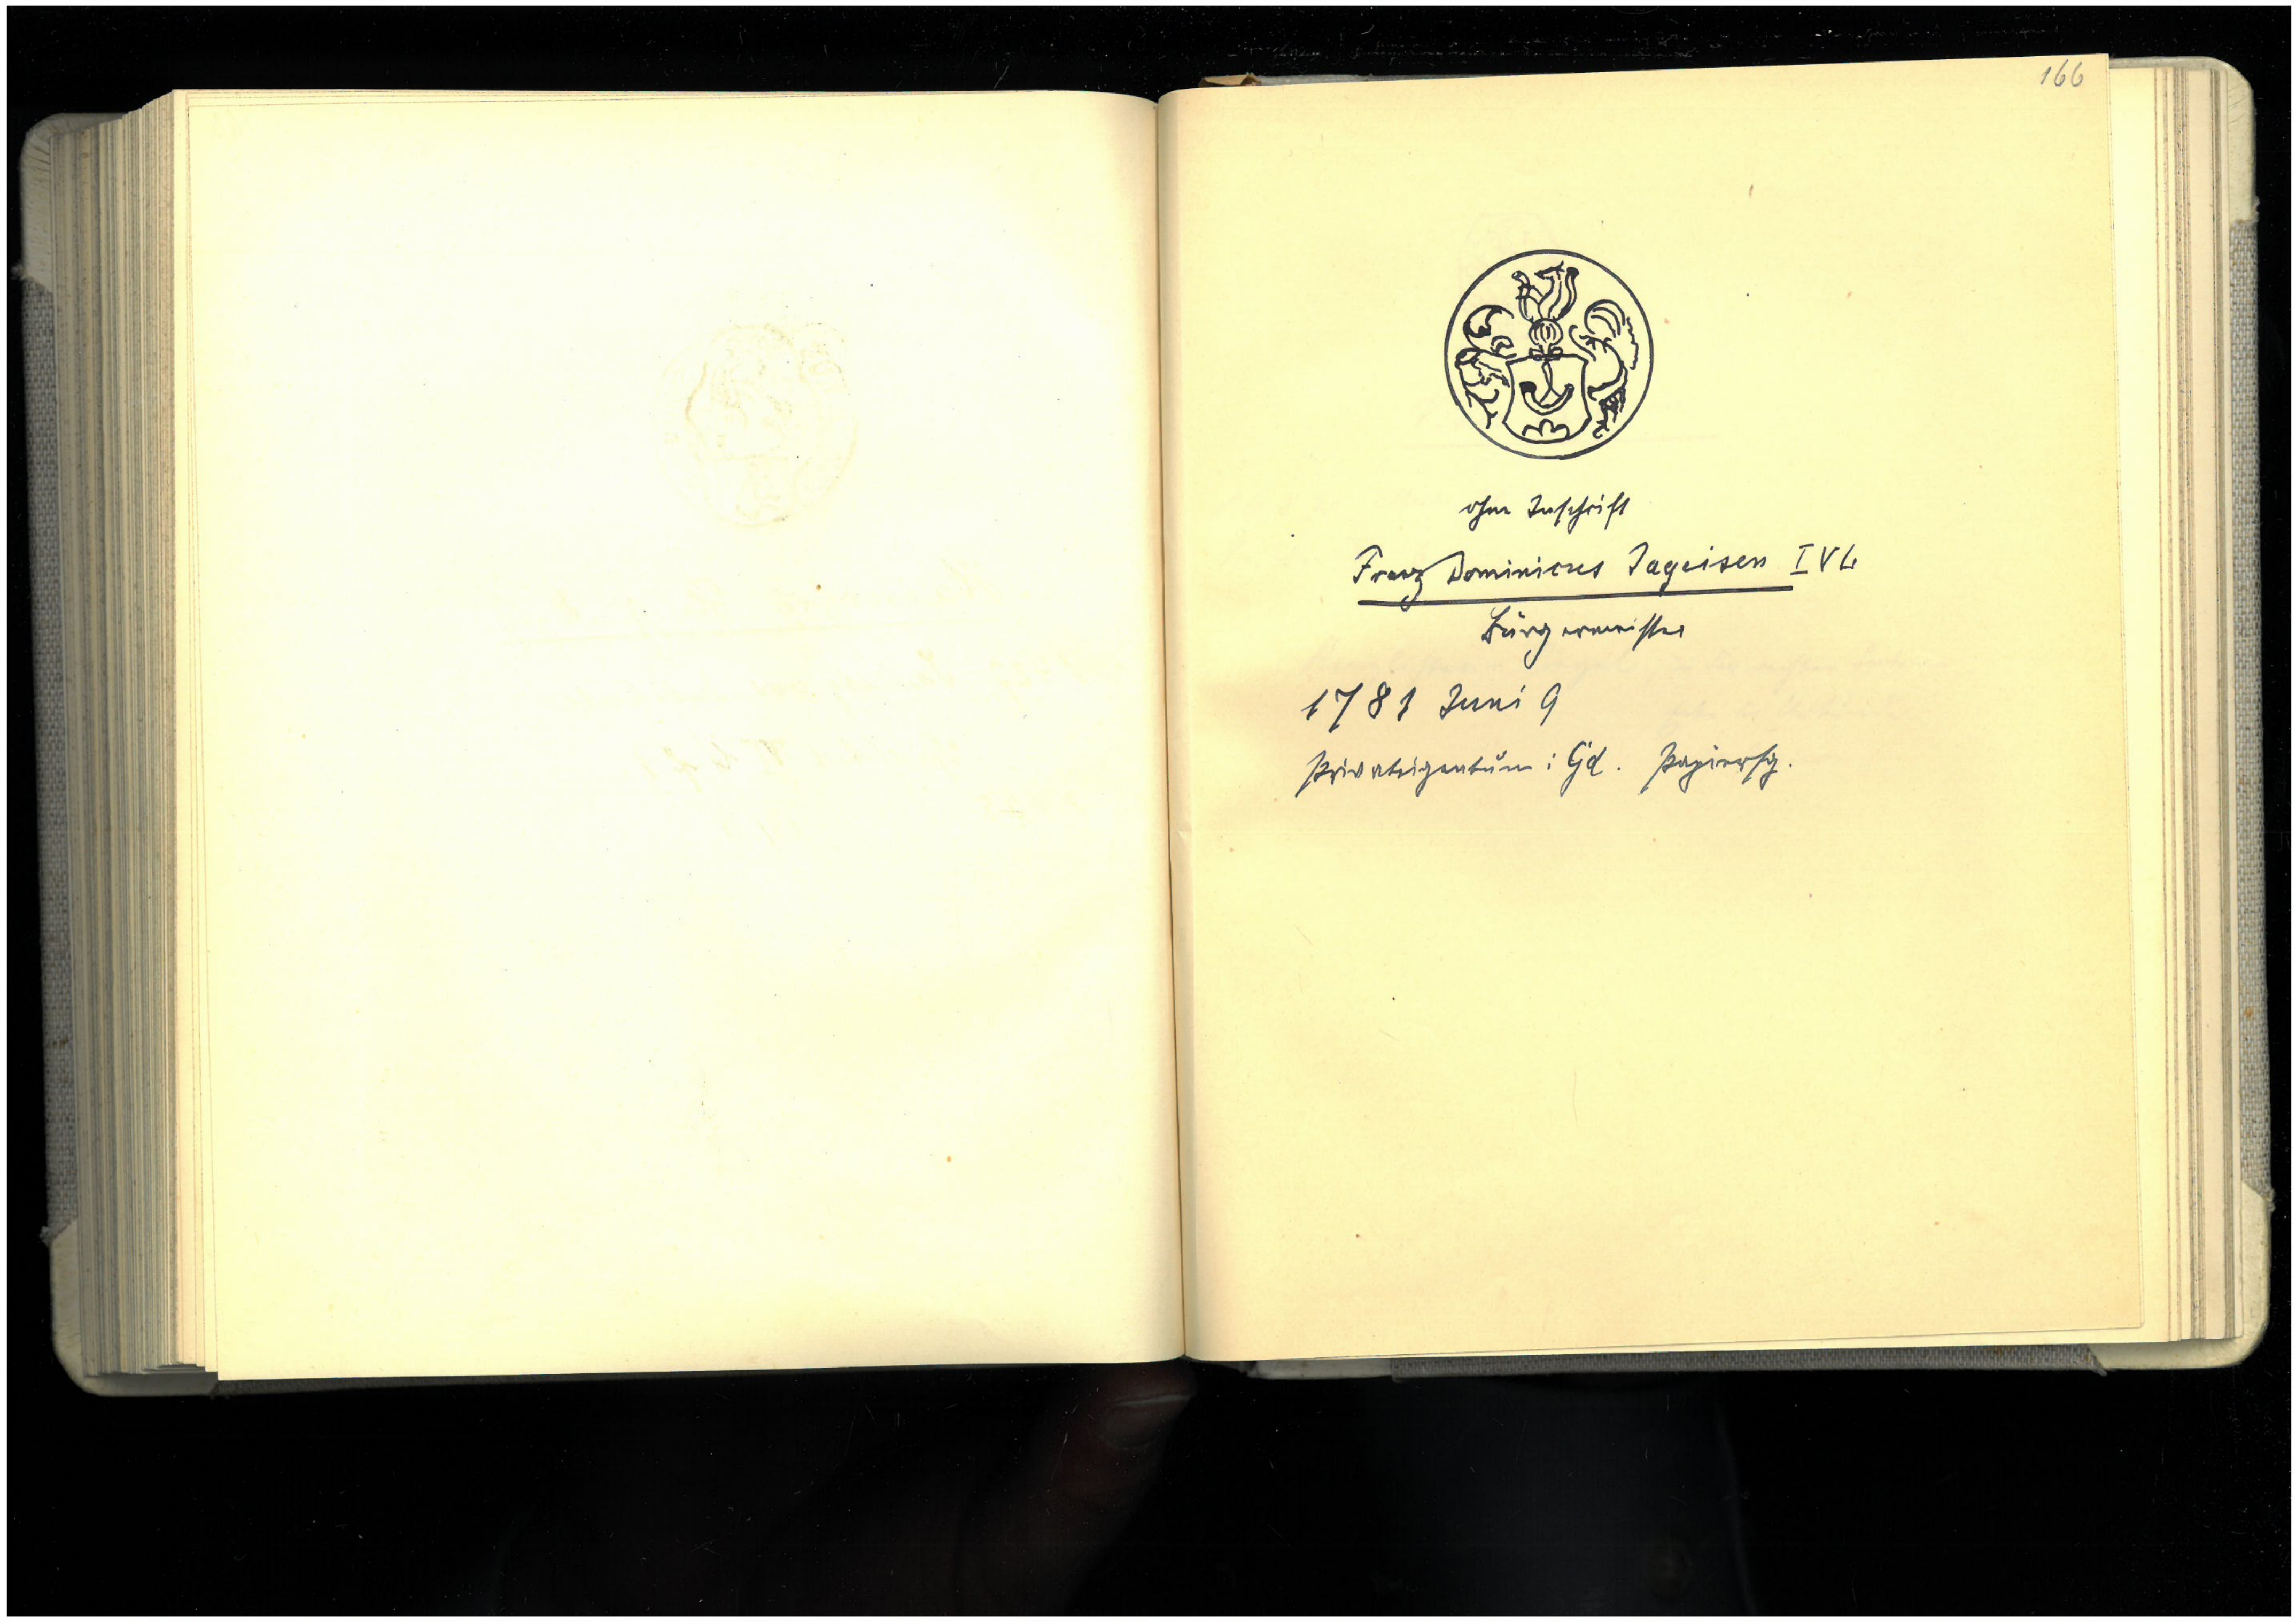 166
ohne Inschrift
Franz Dominicus Jageisen IVL
Bürgermeister
1781 Juni 9
Privateigentum: Gd. Papiersg.